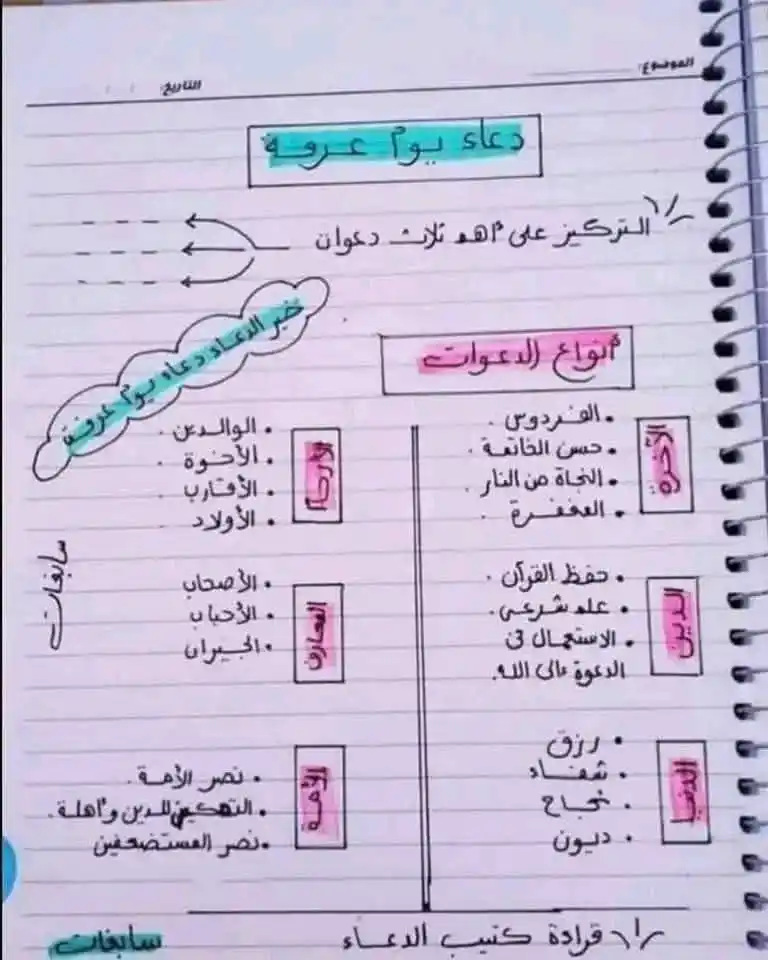 الموضوع:
التاريخ:
دعاء يوم عرفة
١/ التركيز على أهم ثلاث دعوات
خير الدعاء دعاء يوم عرفة
أنواع الدعوات
الآخرة
• الفردوس.
• حسن الخاتمة.
• النجاة من النار.
• المغفرة.
الأرحام
• الوالدين.
• الأخوة.
• الأقارب.
• الأولاد
سابغات
الدين
• حفظ القرآن.
• علم شرعي.
• الاستعمال في
الدعوة إلى الله.
المعارف
• الأصحاب
• الأحباب
• الجيران
الدنيا
• رزق
• شفاء
• نجاح
• ديون
الأمة
• نصر الأمة.
• التمكين للدين وأهلة.
• نصر المستضعفين
١/ قرادة كتيب الدعاء
سابغات